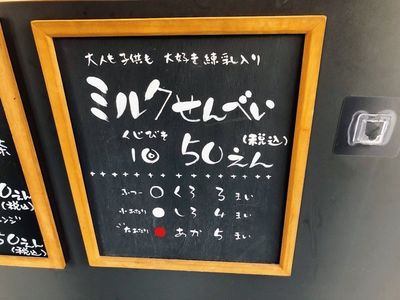 茶
0えん
(税込)
ンジ
50えん
(税込)
大人も子供も 大好き 練乳入り
ミルクせんべい
くじびき
1回 50えん
(税込)
ふつー ○ くろ 3 まい
小あたり ● しろ 4 まい
大あたり ● あか 5 まい